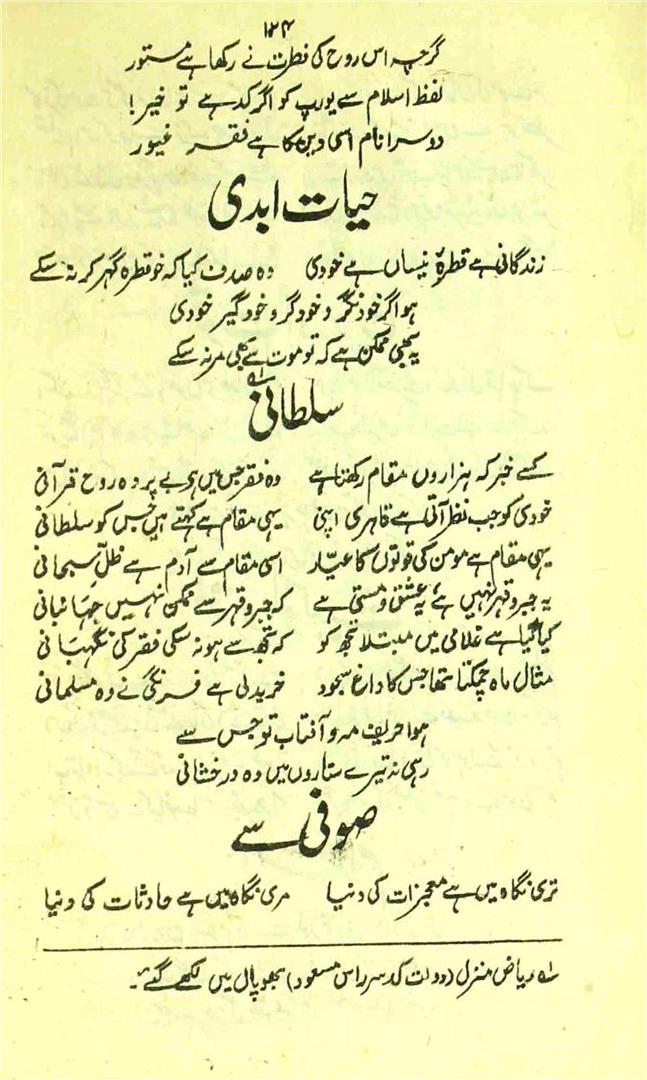 ۱۲۴
گرچہ اس روح کی فطرت نے رکھا ہے مستور
لفظ اسلام سے یورپ کو اگر کد ہے تو خیر!
دوسرا نام اسی دین کا ہے فقر غیور
حیات ابدی
زندگانی ہے قطرۂ نیساں ہے خودی وہ صدف کیا کہ خو قطرہ گہر کر نہ سکے
ہو اگر خود نگر و خودگر و خودگیر خودی
یہ بھی ممکن ہے کہ تو موت سے بھی مر نہ سکے
سلطانی ؎۱
کسے خبر کہ ہزاروں مقام رکھتا ہے وہ فقر جس میں ہے بے پردہ روح قرآنی
خودی کو جب نظر آتی ہے قاہری اپنی یہی مقام ہے کہتے ہیں جس کو سلطانی
یہی مقام ہے مومن کی قوتوں کا عیار اسی مقام سے آدم ہے ظلّ سبحانی
یہ جبر و قہر نہیں ہے یہ عشق و مستی ہے کہ جبر و قہر سے ممکن نہیں جہانبانی
کیا گیا ہے غلامی میں مبتلا تجھ کو کہ تجھ سے ہو نہ سکی فقر کی نگہبانی
مثال ماہ چمکتا تھا جس کا داغ سجود خرید لی ہے فرنگی نے وہ مسلمانی
ہوا حریف مہ و آفتاب تو جس سے
رہی نہ تیرے ستاروں میں وہ درخشانی
صوفی سے
تری نگاہ میں ہے معجزات کی دنیا مری نگاہ میں ہے حادثات کی دنیا
؎۱ ریاض منزل (دولت کدہ سر راس مسعود) بھوپال میں لکھے گئے۔